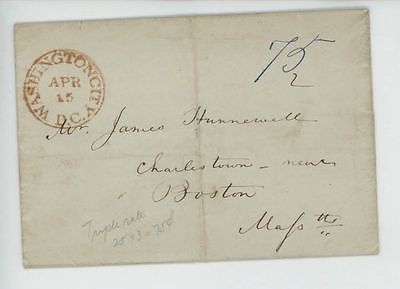 WASHINGTON CITY
APR
15
D.C.
75
2
Mr. James Hunnewell
Charlestown - near
Boston
Maſstts
Triple rate
25 x 3 = 75¢